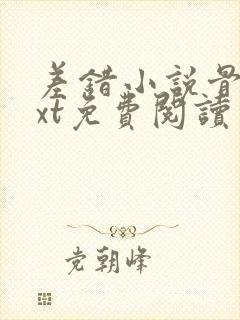 差錯小說骨
xt免費閱讀
党朝峰